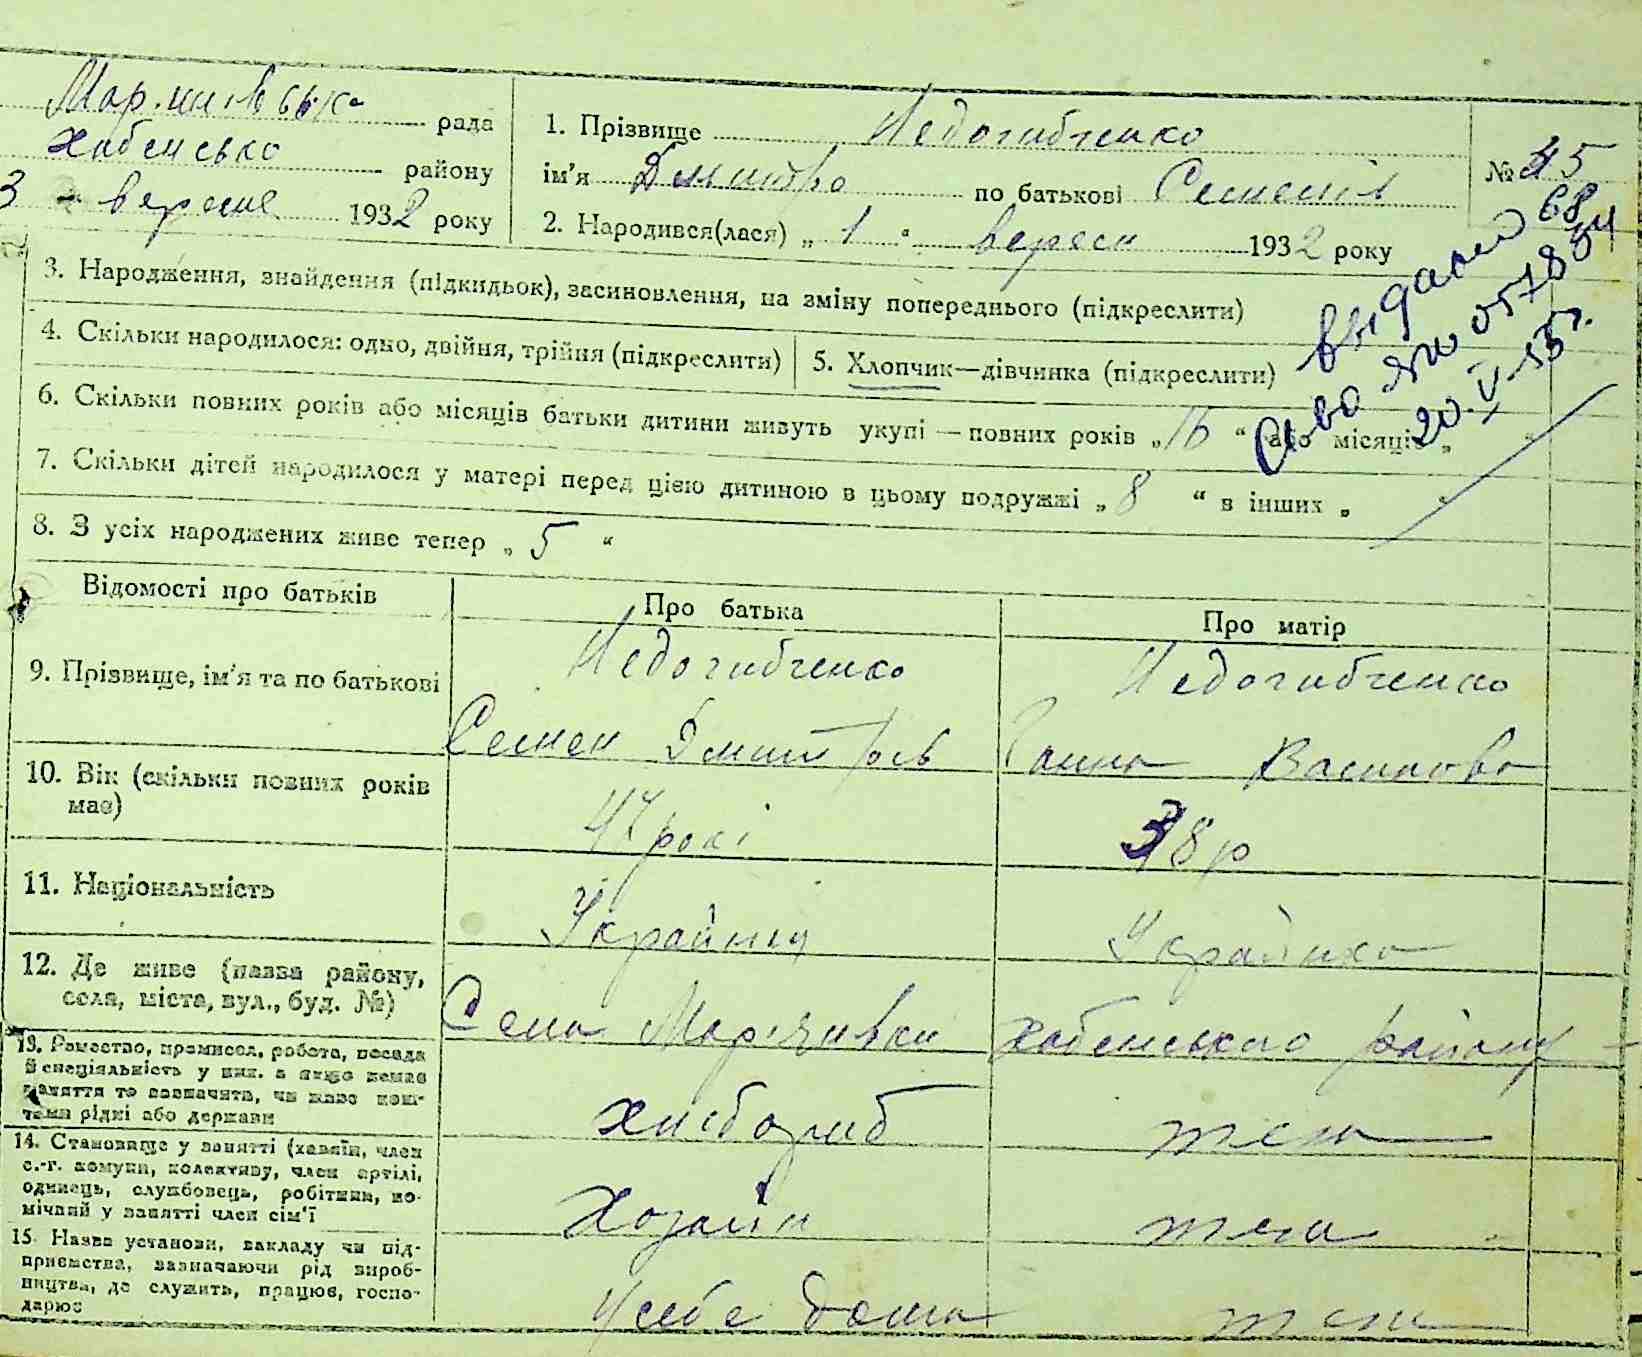 рада
Хабенсько району
3 вересне 1932 року
1. Прізвище Недогибченко
ім'я Дмитро по батькові Семенів
№ 45
2. Народився(лася) „ 1 “ вересн 1932 року
68
выдано
20.V-55г.
3. Народження, знайдення (підкидьок), засиновлення, на зміну попереднього (підкреслити)
4. Скільки народилося: одно, двійня, трійня (підкреслити)
5. Хлопчик—дівчинка (підкреслити)
6. Скільки повних років або місяців батьки дитини живуть укупі — повних років „ 16 “ або місяців „
7. Скільки дітей народилося у матері перед цією дитиною в цьому подружжі „ 8 “ в інших „
8. З усіх народжених живе тепер „ 5 “
Відомості про батьків
Про батька
Про матір
9. Прізвище, ім'я та по батькові
Недогибченко
Семен Дмитров
Недогибченко
Ганна Василова
10. Вік (скільки повних років
має)
47 рокі
38 р
11. Національність
Українец
Українка
12. Де живе (назва району,
села, міста, вул., буд. №)
Села Хабенського району
13. Ремество, промисел, робота, посада
й спеціяльність у них. а якщо немає
заняття то зазначити, чи живе кош-
тами рідні або держави
Хлібороб
теж
14. Становище у занятті (хазяїн, член
с.-г. комуни, колективу, член артілі,
одинець, службовець, робітник, по-
мічний у занятті член сім'ї
Хозяїн
теж
15. Назва установи, закладу чи під-
приємства, зазначаючи рід вироб-
ництва, де служить, працює, госпо-
дарює
У себе дома
теж